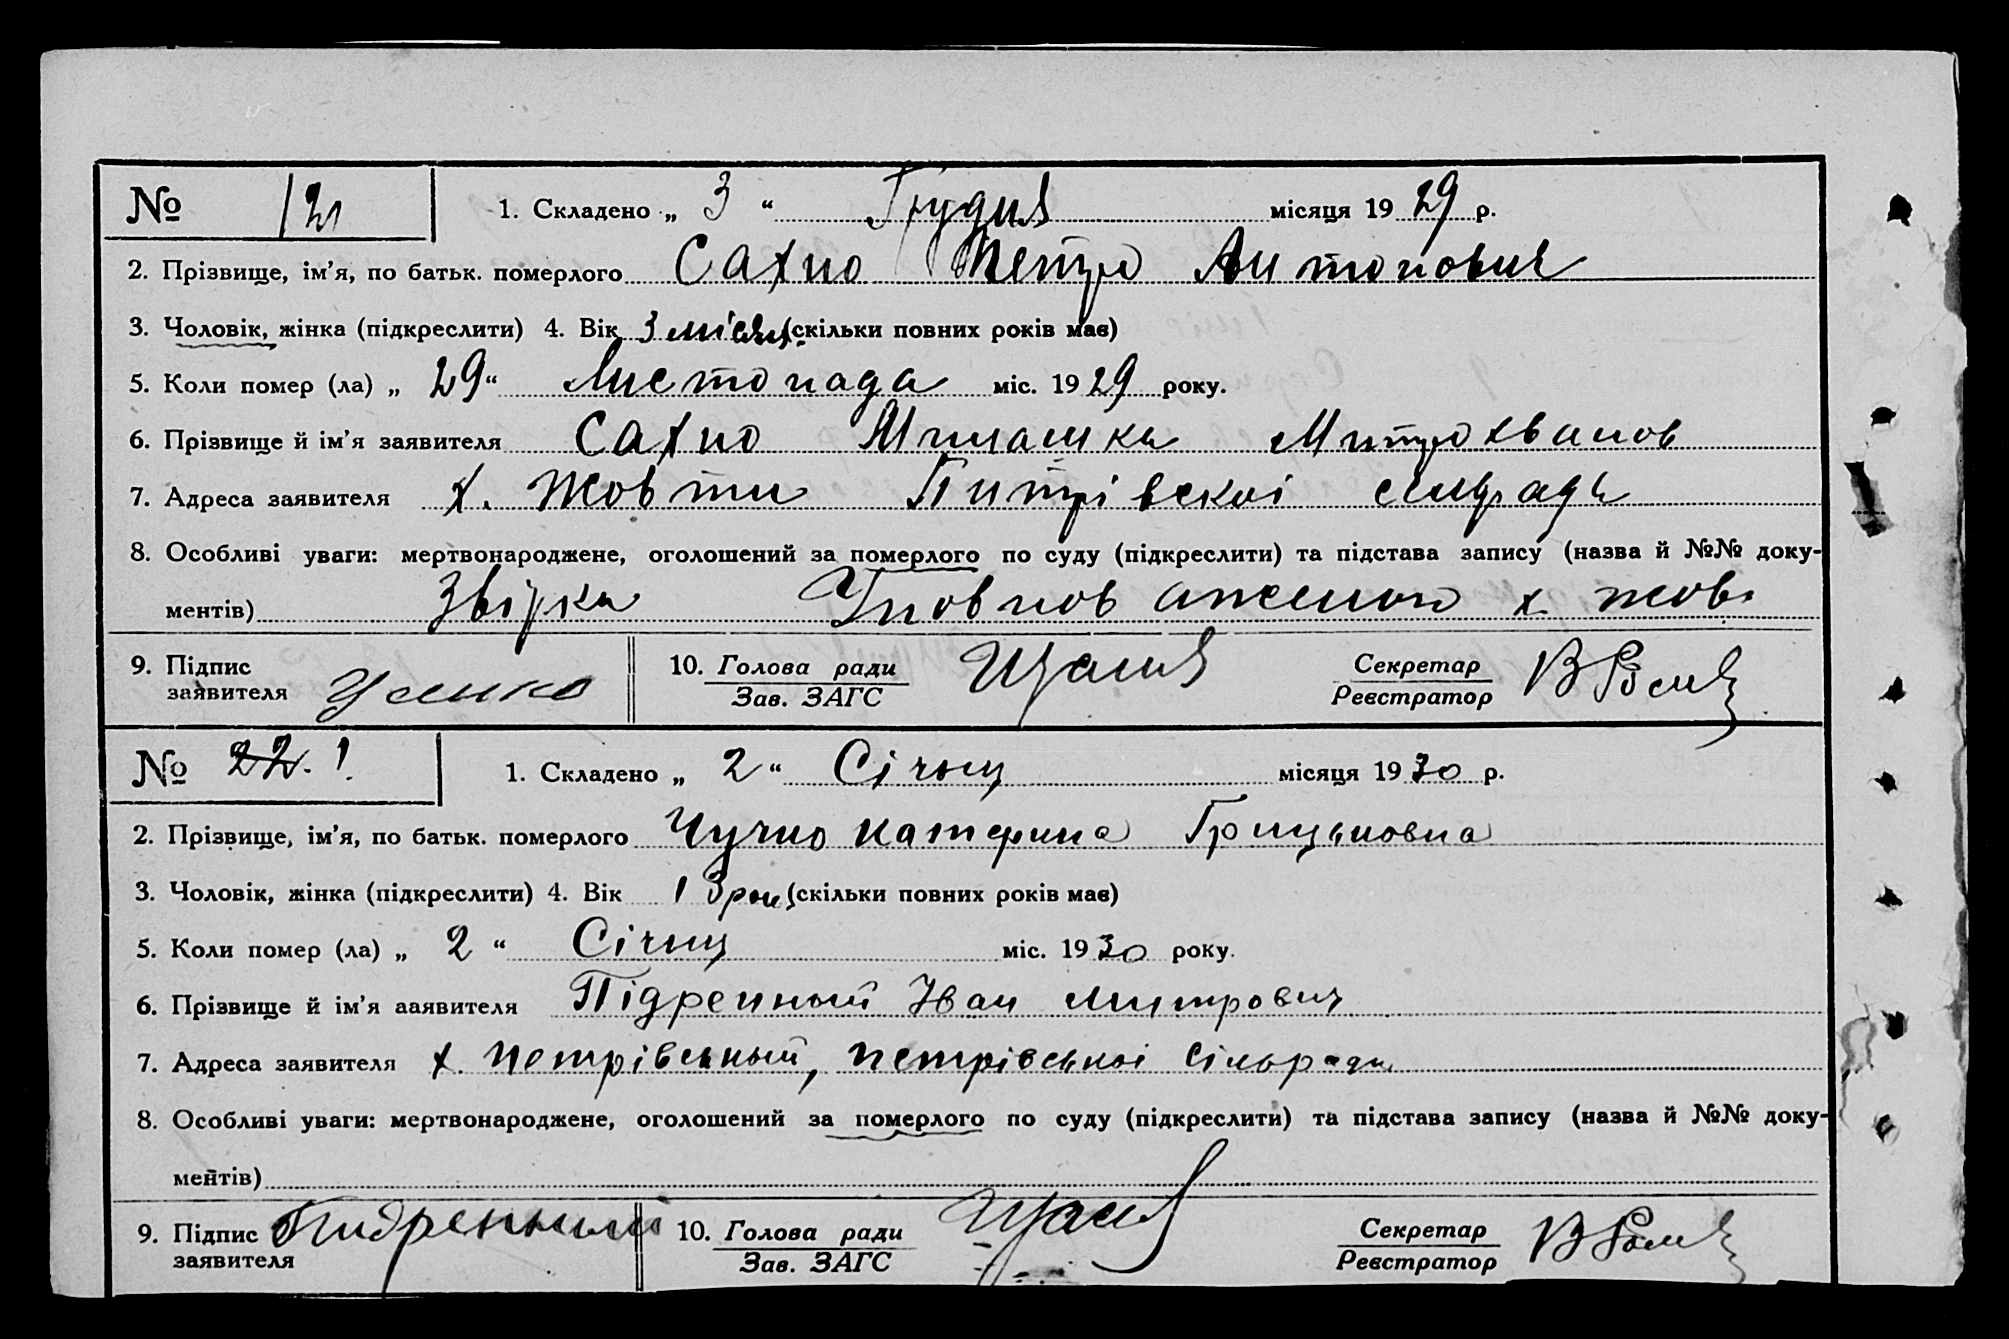 № 121 1. Складено „ 3 “ Грудня місяця 1929 р.
2. Прізвище, ім’я, по батьк. померлого Сахно Петро Антонович
3. Чоловік, жінка (підкреслити) 4. Вік 3 місяц. (скільки повних років має)
5. Коли помер (ла) „ 29 “ Листопада міс. 1929 року.
6. Прізвище й ім’я заявителя Сахно Митрохванов
7. Адреса заявителя х. Жовти Питрівскоі
8. Особливі уваги: мертвонароджене, оголошений за померлого по суду (підкреслити) та підстава запису (назва й №№ доку-
ментів) Звірка Уповноваженого х жов.
9. Підпис
заявителя
10. Голова ради
Зав. ЗАГС
Секретар
Реєстратор
№ 22. 1. 1. Складено „ 2 “ Січня місяця 1930 р.
2. Прізвище, ім’я, по батьк. померлого Чучно Катерина Грицьковна
3. Чоловік, жінка (підкреслити) 4. Вік 13 рок. (скільки повних років має)
5. Коли помер (ла) „ 2 “ Січня міс. 1930 року.
6. Прізвище й ім’я ааявителя Підренный Иван Митрович
7. Адреса заявителя х. Петрівський, Петрівськоі Сільради
8. Особливі уваги: мертвонароджене, оголошений за померлого по суду (підкреслити) та підстава запису (назва й №№ доку-
ментів)
9. Підпис Пидренный
заявителя
10. Голова ради
Зав. ЗАГС
Секретар
Реєстратор